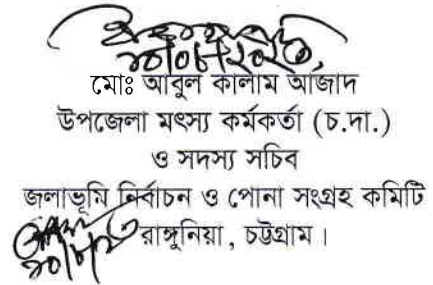 মোঃ আবুল কালাম আজাদ
উপজেলা মৎস্য কর্মকর্তা (চ.দা.)
ও সদস্য সচিব
জলাভূমি নির্বাচন ও পোনা সংগ্রহ কমিটি
রাঙ্গুনিয়া, চট্টগ্রাম।